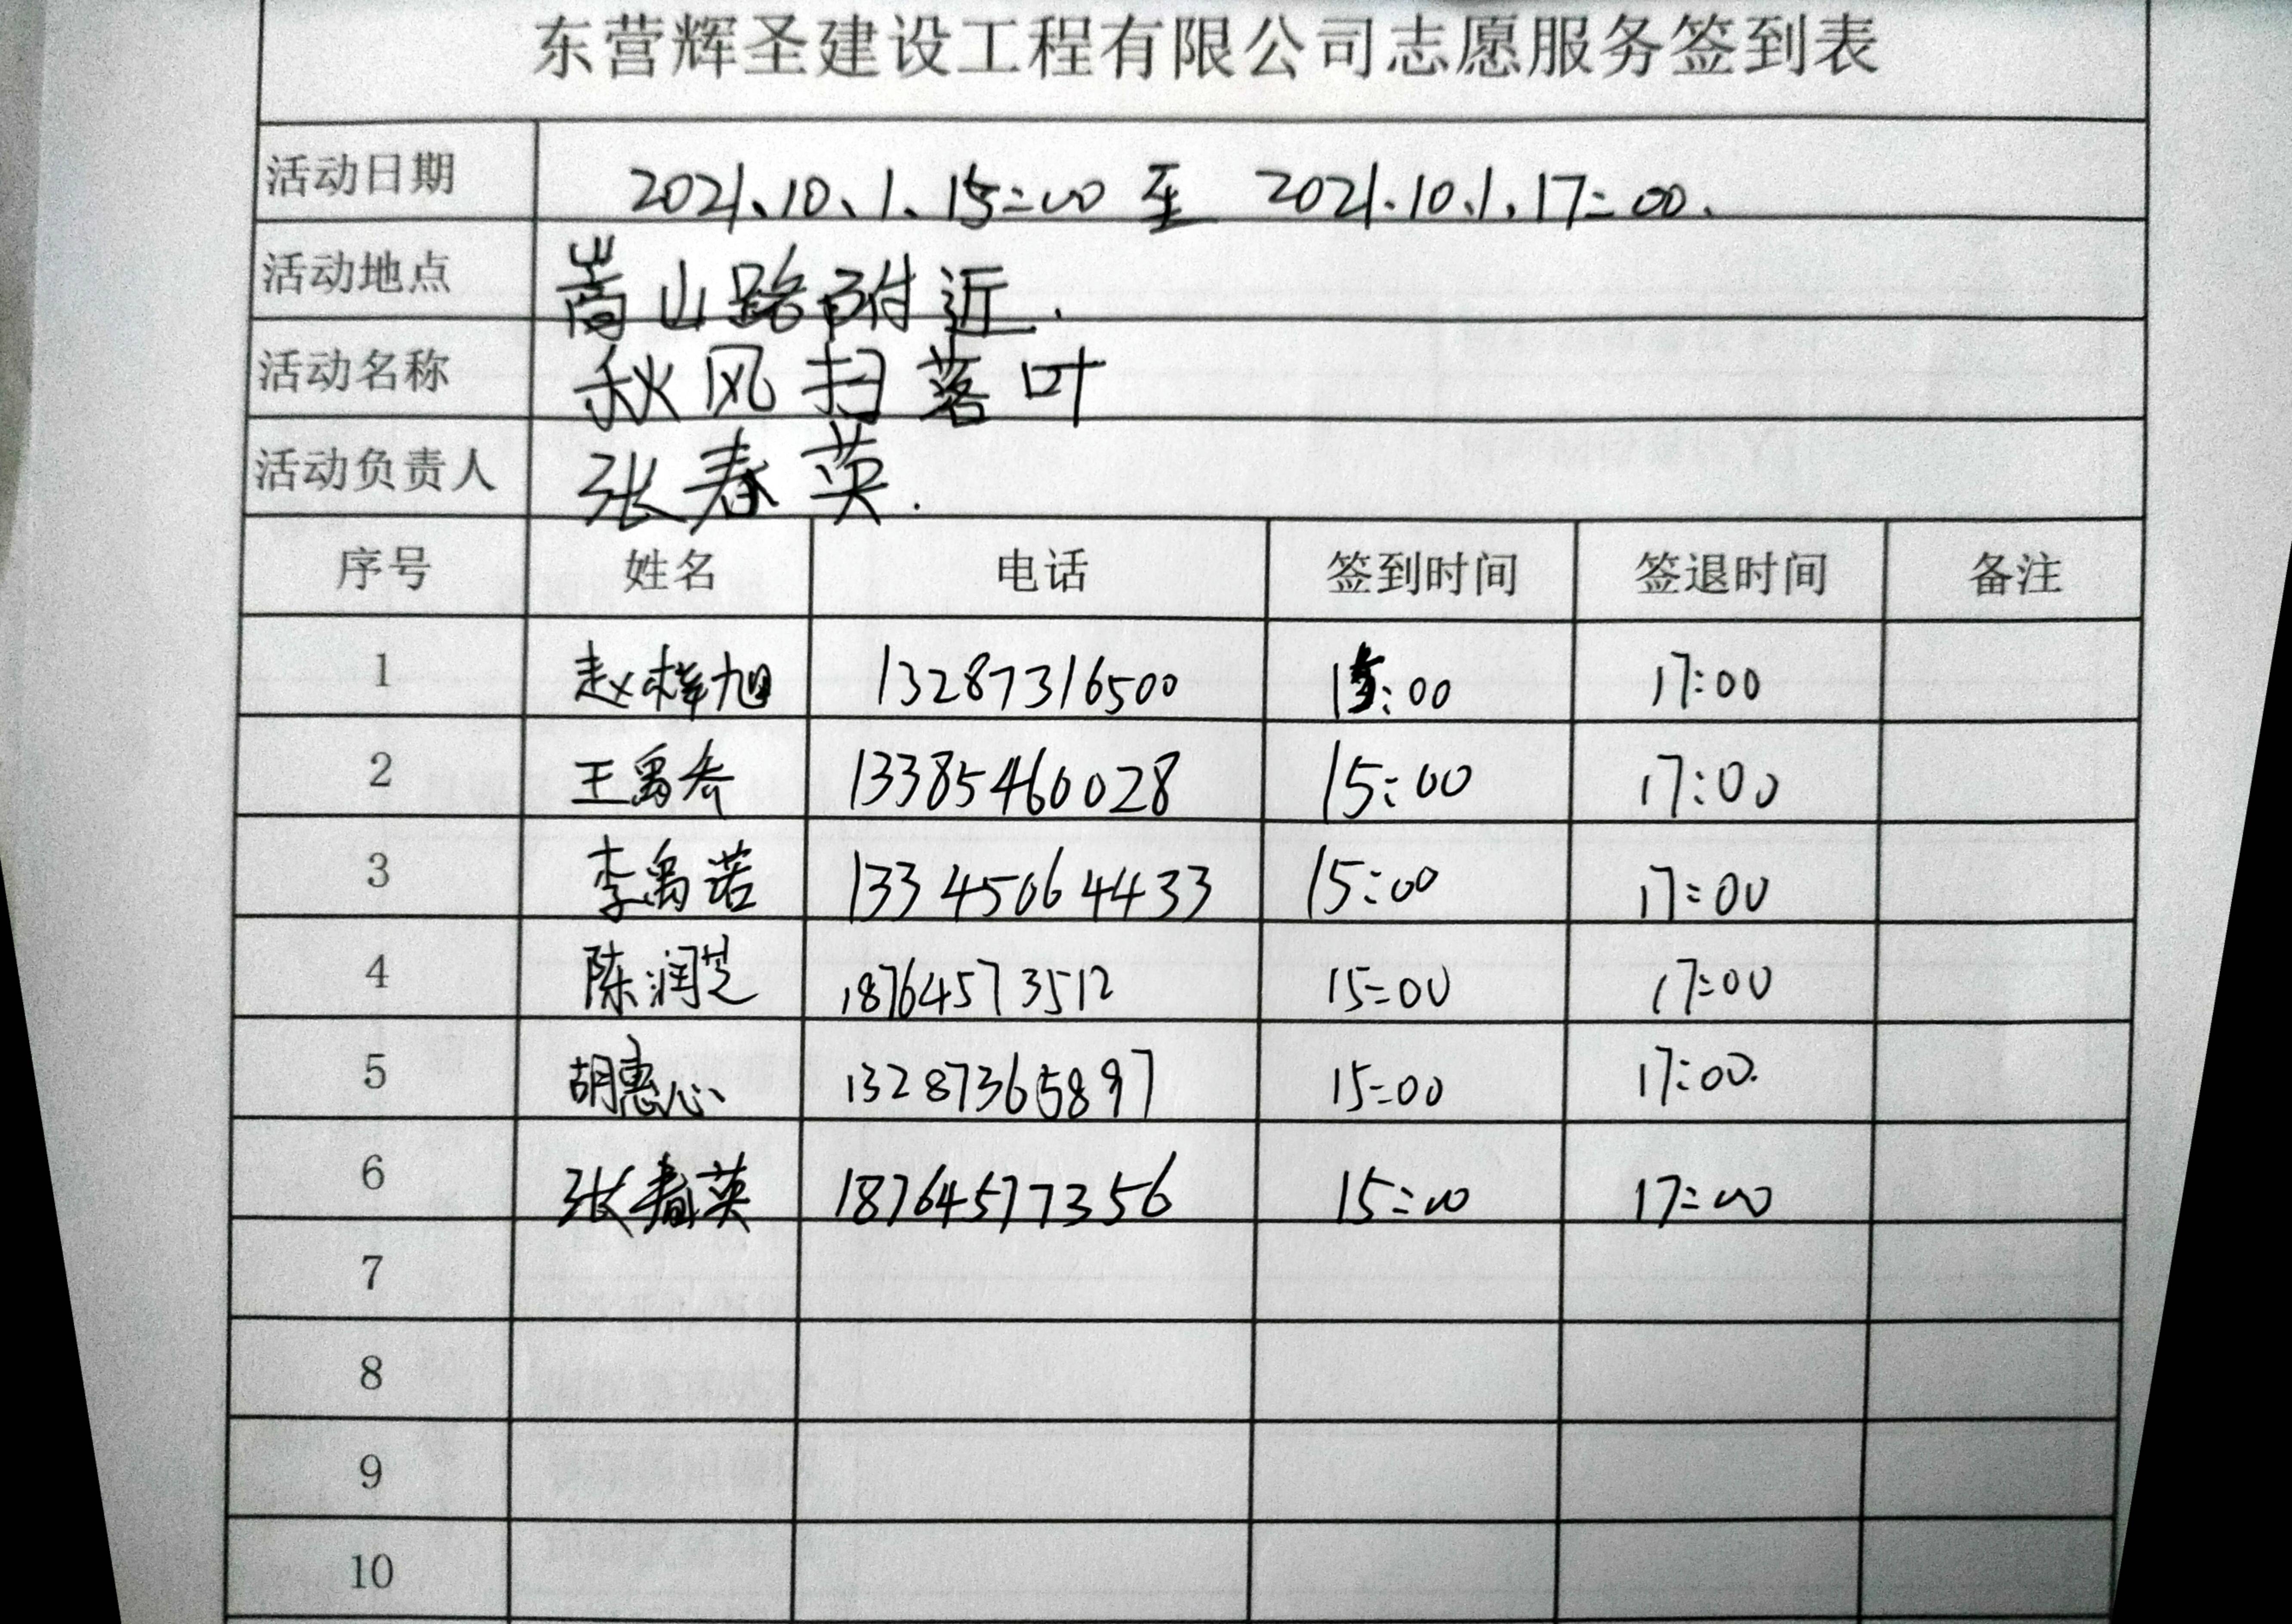 东营辉圣建设工程有限公司志愿服务签到表
活动日期 2021、10、1、15:00 至 2021.10.1.17:00.
活动地点 嵩山路附近.
活动名称 秋风扫落叶
活动负责人 张春英.
序号 姓名 电话 签到时间 签退时间 备注
1 赵梓旭 13287316500 15:00 17:00
2 王禹 13385460028 15:00 17:00
3 李禹诺 13345064433 15:00 17:00
4 陈润芝 18764573512 15:00 17:00
5 胡惠心 13287365897 15:00 17:00.
6 张春英 18764577356 15:00 17:00
7
8
9
10